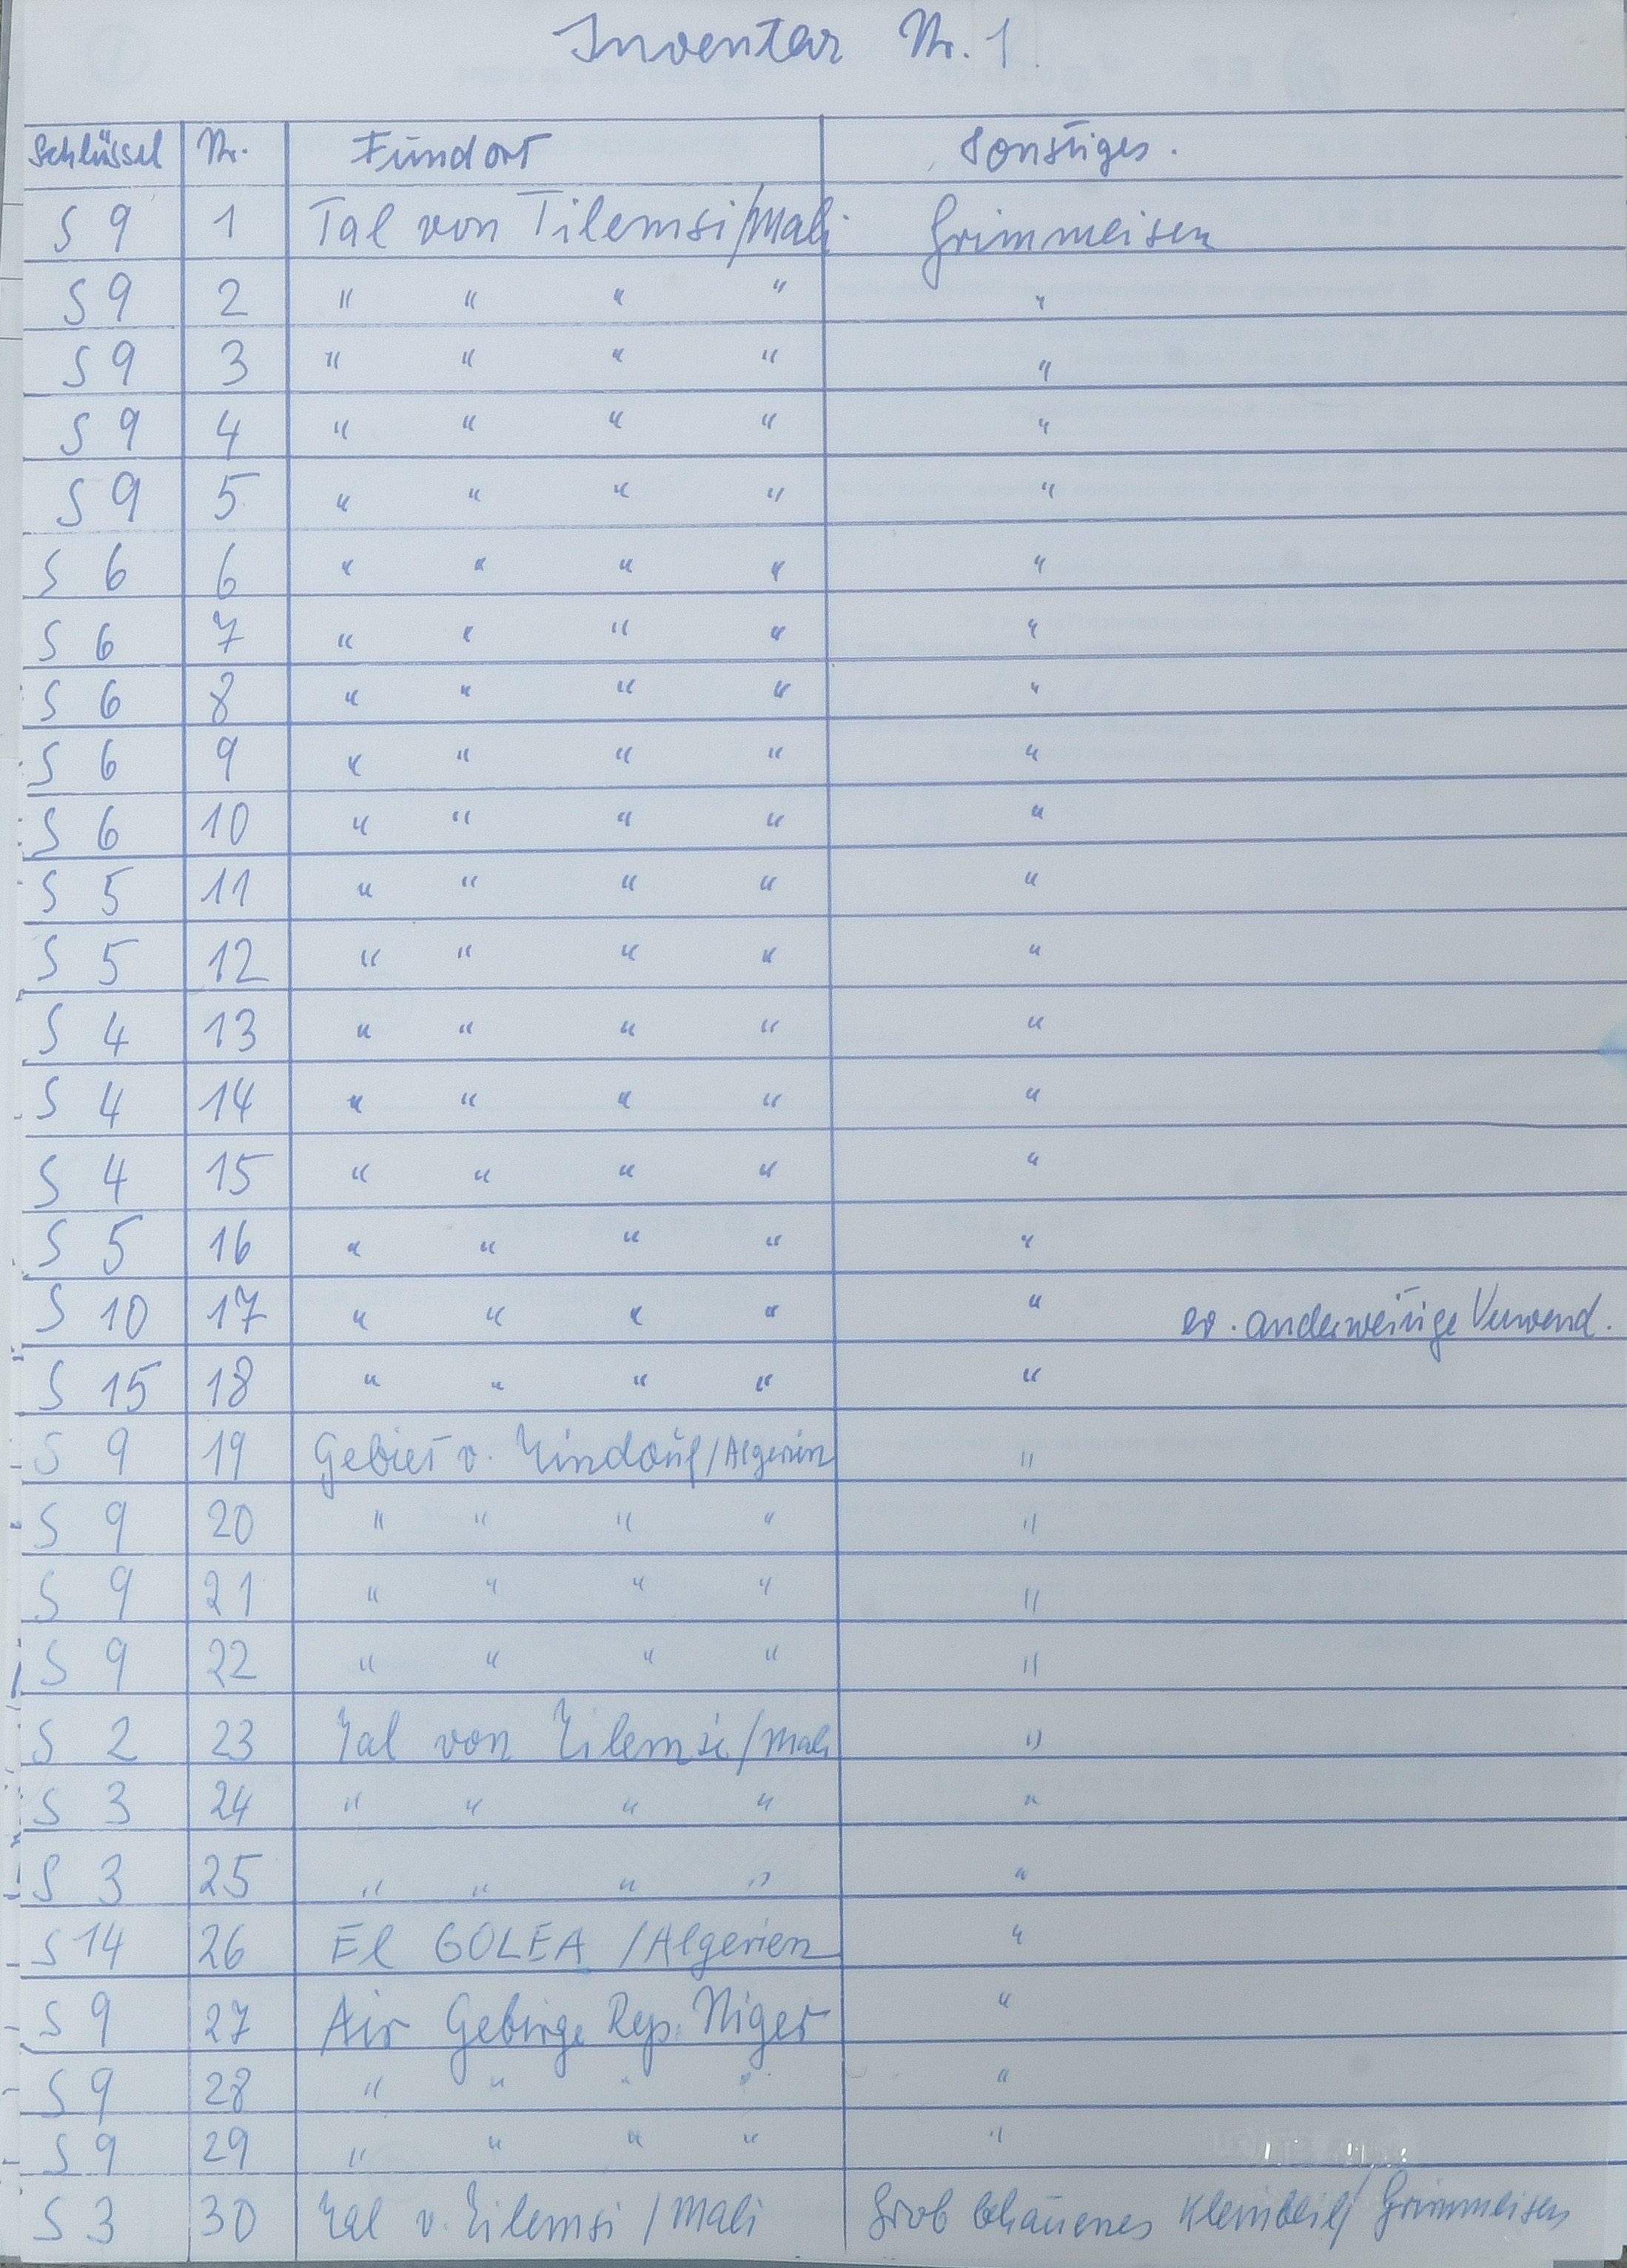 Inventar Nr. 1
Schlüssel Nr. Fundort Sonstiges.
S 9 1 Tal von Tilemsi/Mali Grimmeisen
S 9 2 " " " " "
S 9 3 " " " " "
S 9 4 " " " " "
S 9 5 " " " " "
S 6 6 " " " " "
S 6 7 " " " " "
S 6 8 " " " " "
S 6 9 " " " " "
S 6 10 " " " " "
S 5 11 " " " " "
S 5 12 " " " " "
S 4 13 " " " " "
S 4 14 " " " " "
S 4 15 " " " " "
S 5 16 " " " " "
S 10 17 " " " " " ev. anderweitige Verwend.
S 15 18 " " " " "
S 9 19 Gebiet v. Tindouf/Algerien "
S 9 20 " " " " "
S 9 21 " " " " "
S 9 22 " " " " "
S 2 23 Tal von Tilemsi/Mali "
S 3 24 " " " " "
S 3 25 " " " " "
S 14 26 El GOLEA /Algerien "
S 9 27 Air Gebirge Rep. Niger "
S 9 28 " " " " "
S 9 29 " " " " "
S 3 30 Tal v. Tilemsi / Mali Grob behauenes Kleinbeil/ Grimmeisen